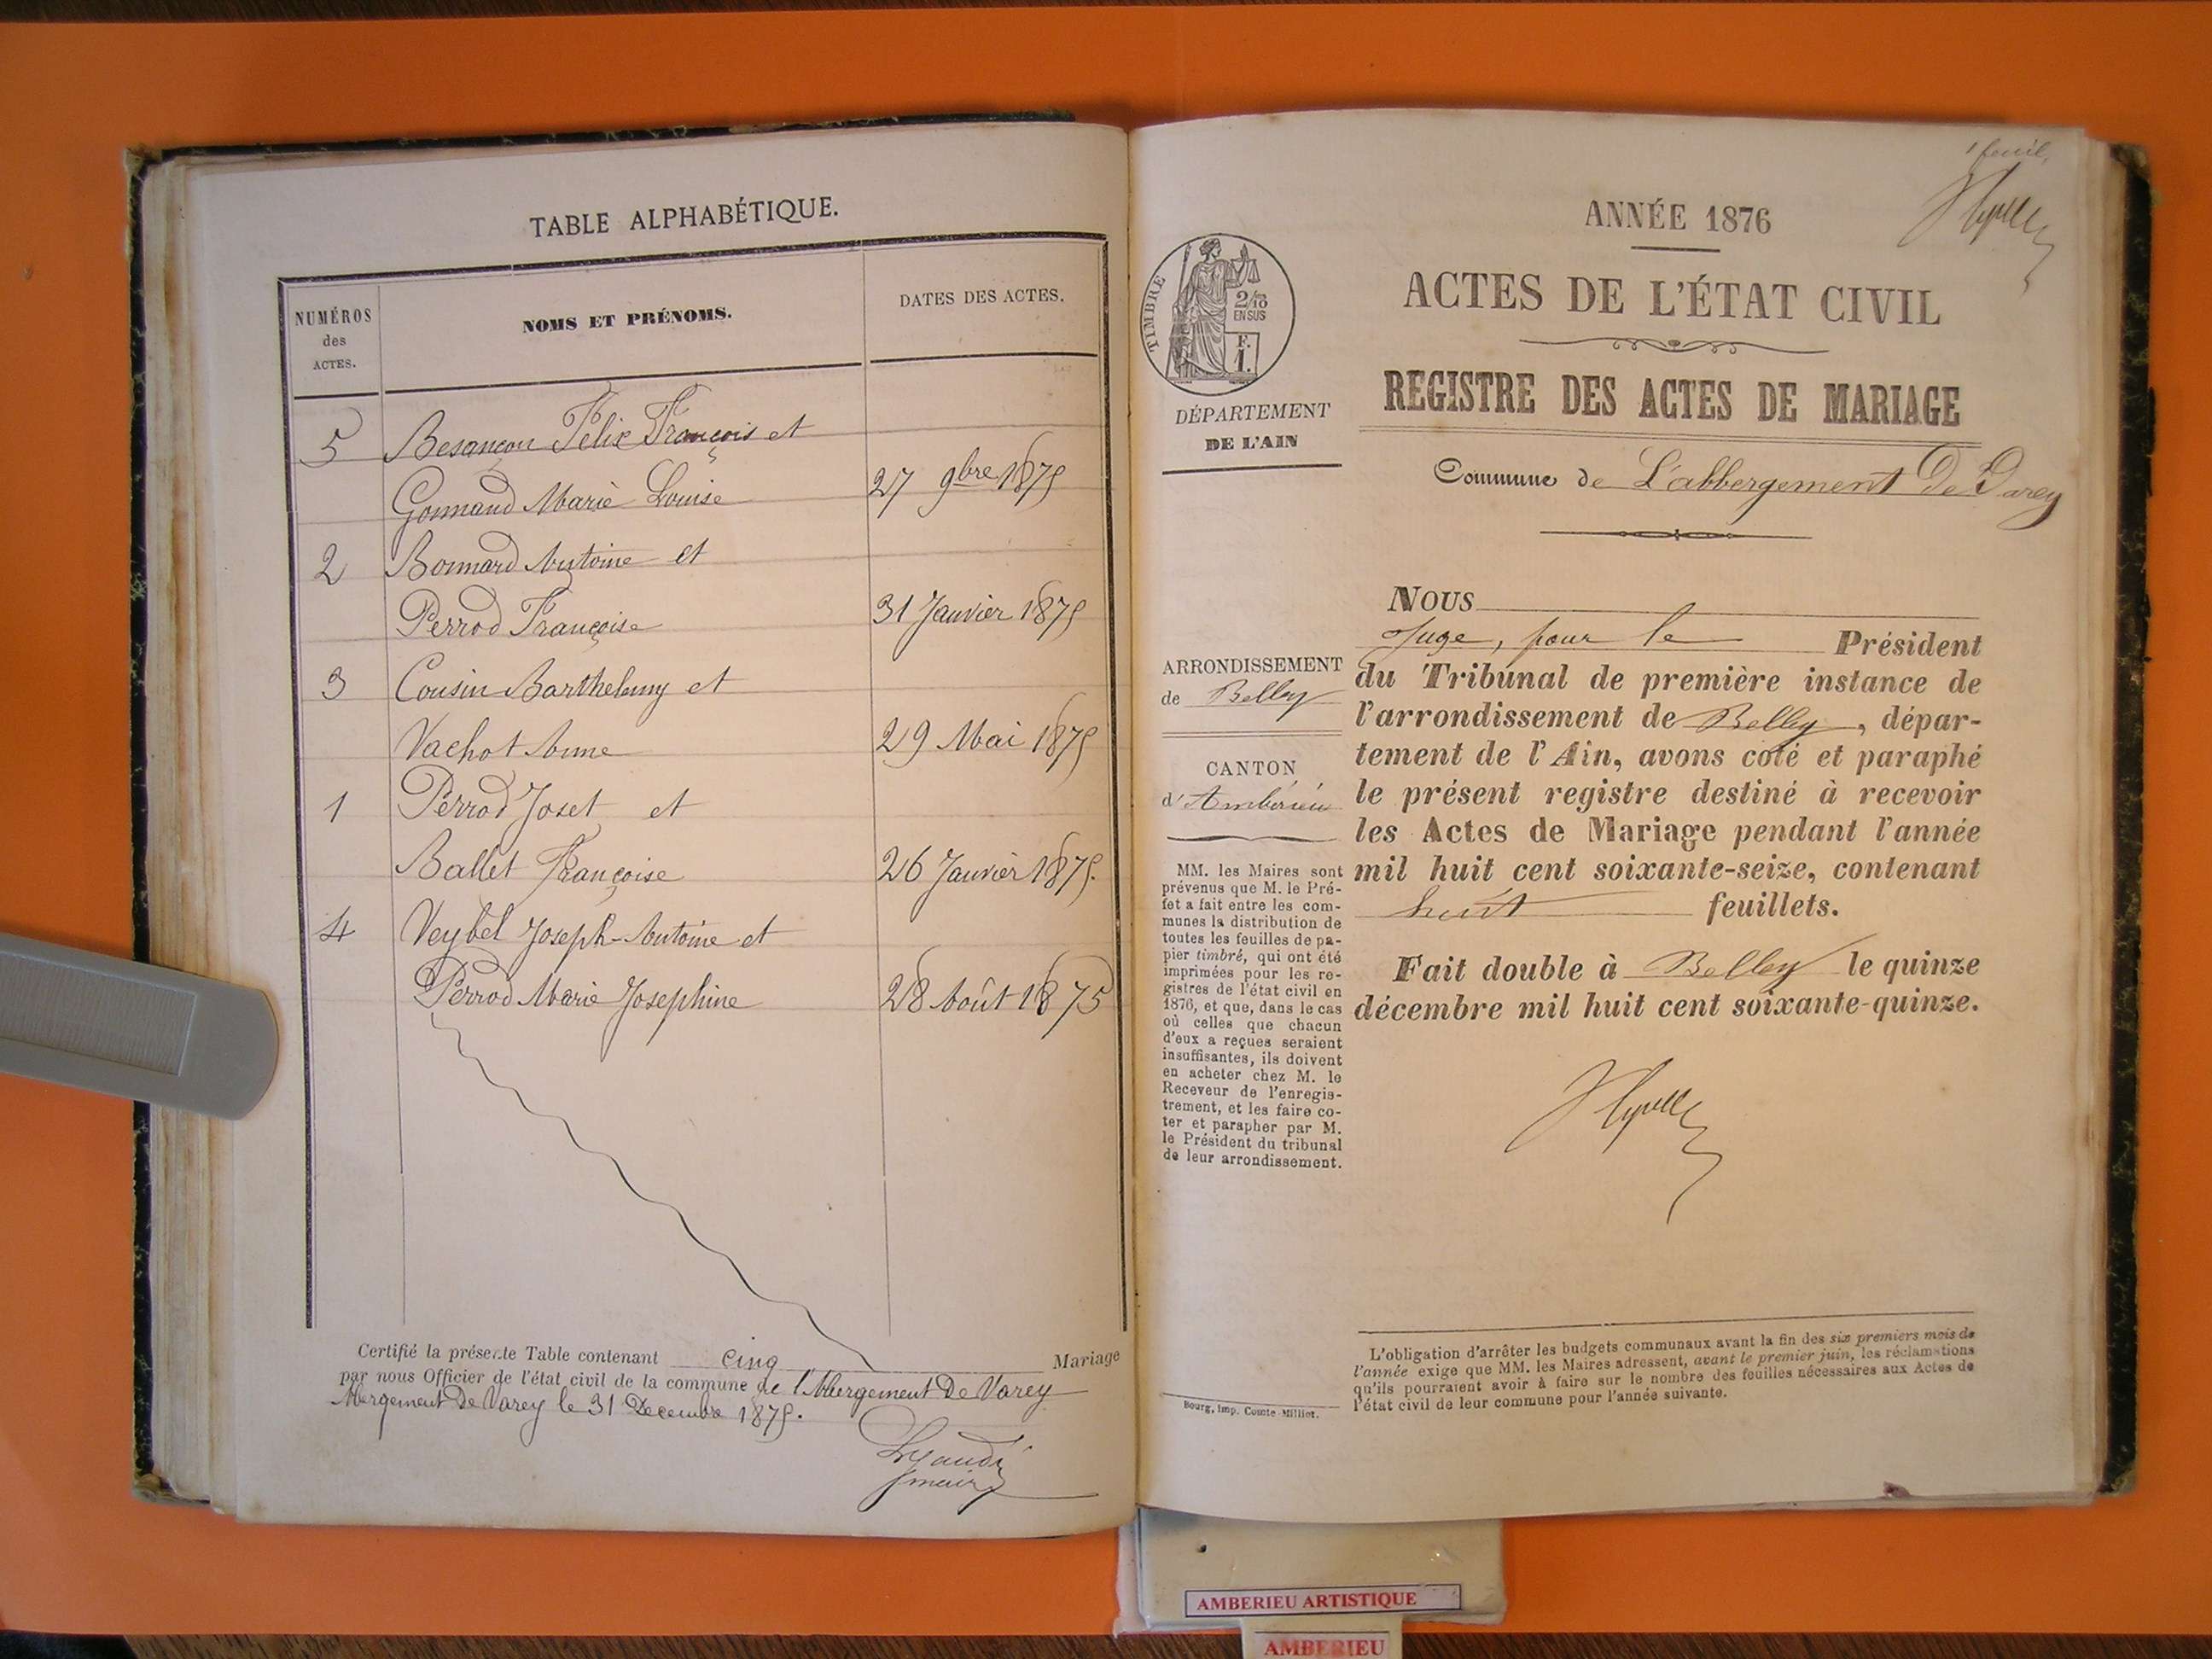 TABLE ALPHABÉTIQUE.
NUMÉROS
des
ACTES.
NOMS ET PRÉNOMS.
DATES DES ACTES.
5 Besançon Félix François et
Gonnand Marie Louise 27 9bre 1875
2 Bonnard Antoine et
Perrod Françoise 31 Janvier 1875
3 Cousin Barthelemy et
Vachot Anne 29 Mai 1875
1 Perrod Joset et
Ballet Françoise 26 Janvier 1875.
4 Veybel Joseph-Antoine et
Perrod Marie Josephine 28 Août 1875
Certifié la présente Table contenant cinq Mariage
par nous Officier de l'état civil de la commune de l'Abergement De Varey
Abergement De Varey le 31 Decembre 1875.
maire
1 feuil.
ANNÉE 1876
ACTES DE L'ÉTAT CIVIL
REGISTRE DES ACTES DE MARIAGE
Commune de L'abbergement De Varey
TIMBRE
2/10
EN SUS
F.
1.
DÉPARTEMENT
DE L'AIN
ARRONDISSEMENT
de Belley
CANTON
d'Ambérieu
MM. les Maires sont
prévenus que M. le Pré-
fet a fait entre les com-
munes la distribution de
toutes les feuilles de pa-
pier timbré, qui ont été
imprimées pour les re-
gistres de l'état civil en
1876, et que, dans le cas
où celles que chacun
d'eux a reçues seraient
insuffisantes, ils doivent
en acheter chez M. le
Receveur de l'enregis-
trement, et les faire co-
ter et parapher par M.
le Président du tribunal
de leur arrondissement.
NOUS
Juge, pour le Président
du Tribunal de première instance de
l'arrondissement de Belley, dépar-
tement de l'Ain, avons coté et paraphé
le présent registre destiné à recevoir
les Actes de Mariage pendant l'année
mil huit cent soixante-seize, contenant
huit feuillets.
Fait double à Belley le quinze
décembre mil huit cent soixante-quinze.
L'obligation d'arrêter les budgets communaux avant la fin des six premiers mois de
l'année exige que MM. les Maires adressent, avant le premier juin, les réclamations
qu'ils pourraient avoir à faire sur le nombre des feuilles nécessaires aux Actes de
l'état civil de leur commune pour l'année suivante.
Bourg, imp. Comte-Milliet.
AMBERIEU ARTISTIQUE
AMBERIEU